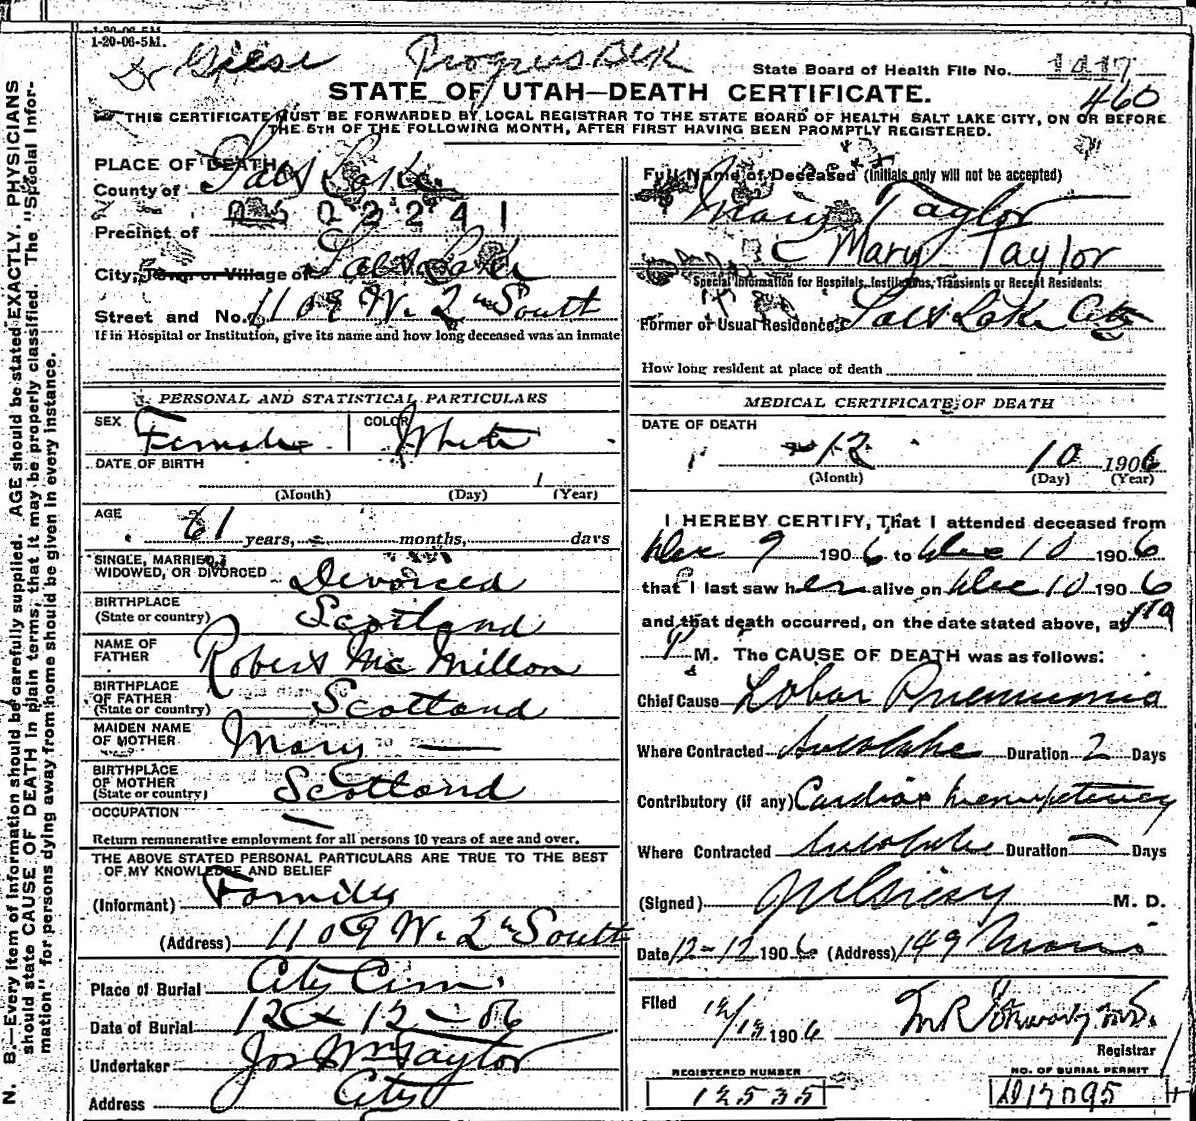 1-20-06-5M.
1-20-06-5M.
Dr Giese Progress Blk
State Board of Health File No. 1417
STATE OF UTAH—DEATH CERTIFICATE.
460
THIS CERTIFICATE MUST BE FORWARDED BY LOCAL REGISTRAR TO THE STATE BOARD OF HEALTH SALT LAKE CITY, ON OR BEFORE
THE 5TH OF THE FOLLOWING MONTH, AFTER FIRST HAVING BEEN PROMPTLY REGISTERED.
PLACE OF DEATH
County of Salt Lake
022241
Precinct of
City, Town or Village of Salt Lake
Street and No. 1109 W. 2nd South
If in Hospital or Institution, give its name and how long deceased was an inmate
Full Name of Deceased (Initials only will not be accepted)
Mary Taylor
Mary Taylor
Special Information for Hospitals, Institutions, Transients or Recent Residents:
Former or Usual Residence, Salt Lake City
How long resident at place of death
PERSONAL AND STATISTICAL PARTICULARS
SEX Female COLOR White
DATE OF BIRTH
(Month) (Day) (Year)
AGE
61 years, months, days
SINGLE, MARRIED,
WIDOWED, OR DIVORCED Divorced
BIRTHPLACE
(State or country) Scotland
NAME OF
FATHER Robert McMillon
BIRTHPLACE
OF FATHER
(State or country) Scotland
MAIDEN NAME
OF MOTHER Mary —
BIRTHPLACE
OF MOTHER
(State or country) Scotland
OCCUPATION —
Return remunerative employment for all persons 10 years of age and over.
THE ABOVE STATED PERSONAL PARTICULARS ARE TRUE TO THE BEST
OF MY KNOWLEDGE AND BELIEF
(Informant) Family
(Address) 1109 W. 2nd South
Place of Burial City Cem.
Date of Burial 12 12 - 06
Undertaker Jos Wm Taylor
Address City
MEDICAL CERTIFICATE OF DEATH
DATE OF DEATH
12 10 1906
(Month) (Day) (Year)
I HEREBY CERTIFY, That I attended deceased from
Dec 9 1906 to Dec 10 1906
that I last saw her alive on Dec 10 1906
and that death occurred, on the date stated above, at
P M. The CAUSE OF DEATH was as follows:
Chief Cause Lobar Pneumonia
Where Contracted Salt Lake Duration 2 Days
Contributory (if any) Cardiac Incompetency
Where Contracted Salt Lake Duration — Days
(Signed) M. D.
Date 12-12 1906 (Address) 149 Main
Filed 12/12 1906
Registrar
REGISTERED NUMBER
12535
NO. OF BURIAL PERMIT
D17095
N. B.—Every item of information should be carefully supplied. AGE should be stated EXACTLY. PHYSICIANS
should state CAUSE OF DEATH in plain terms, that it may be properly classified. The "Special Infor-
mation" for persons dying away from home should be given in every instance.